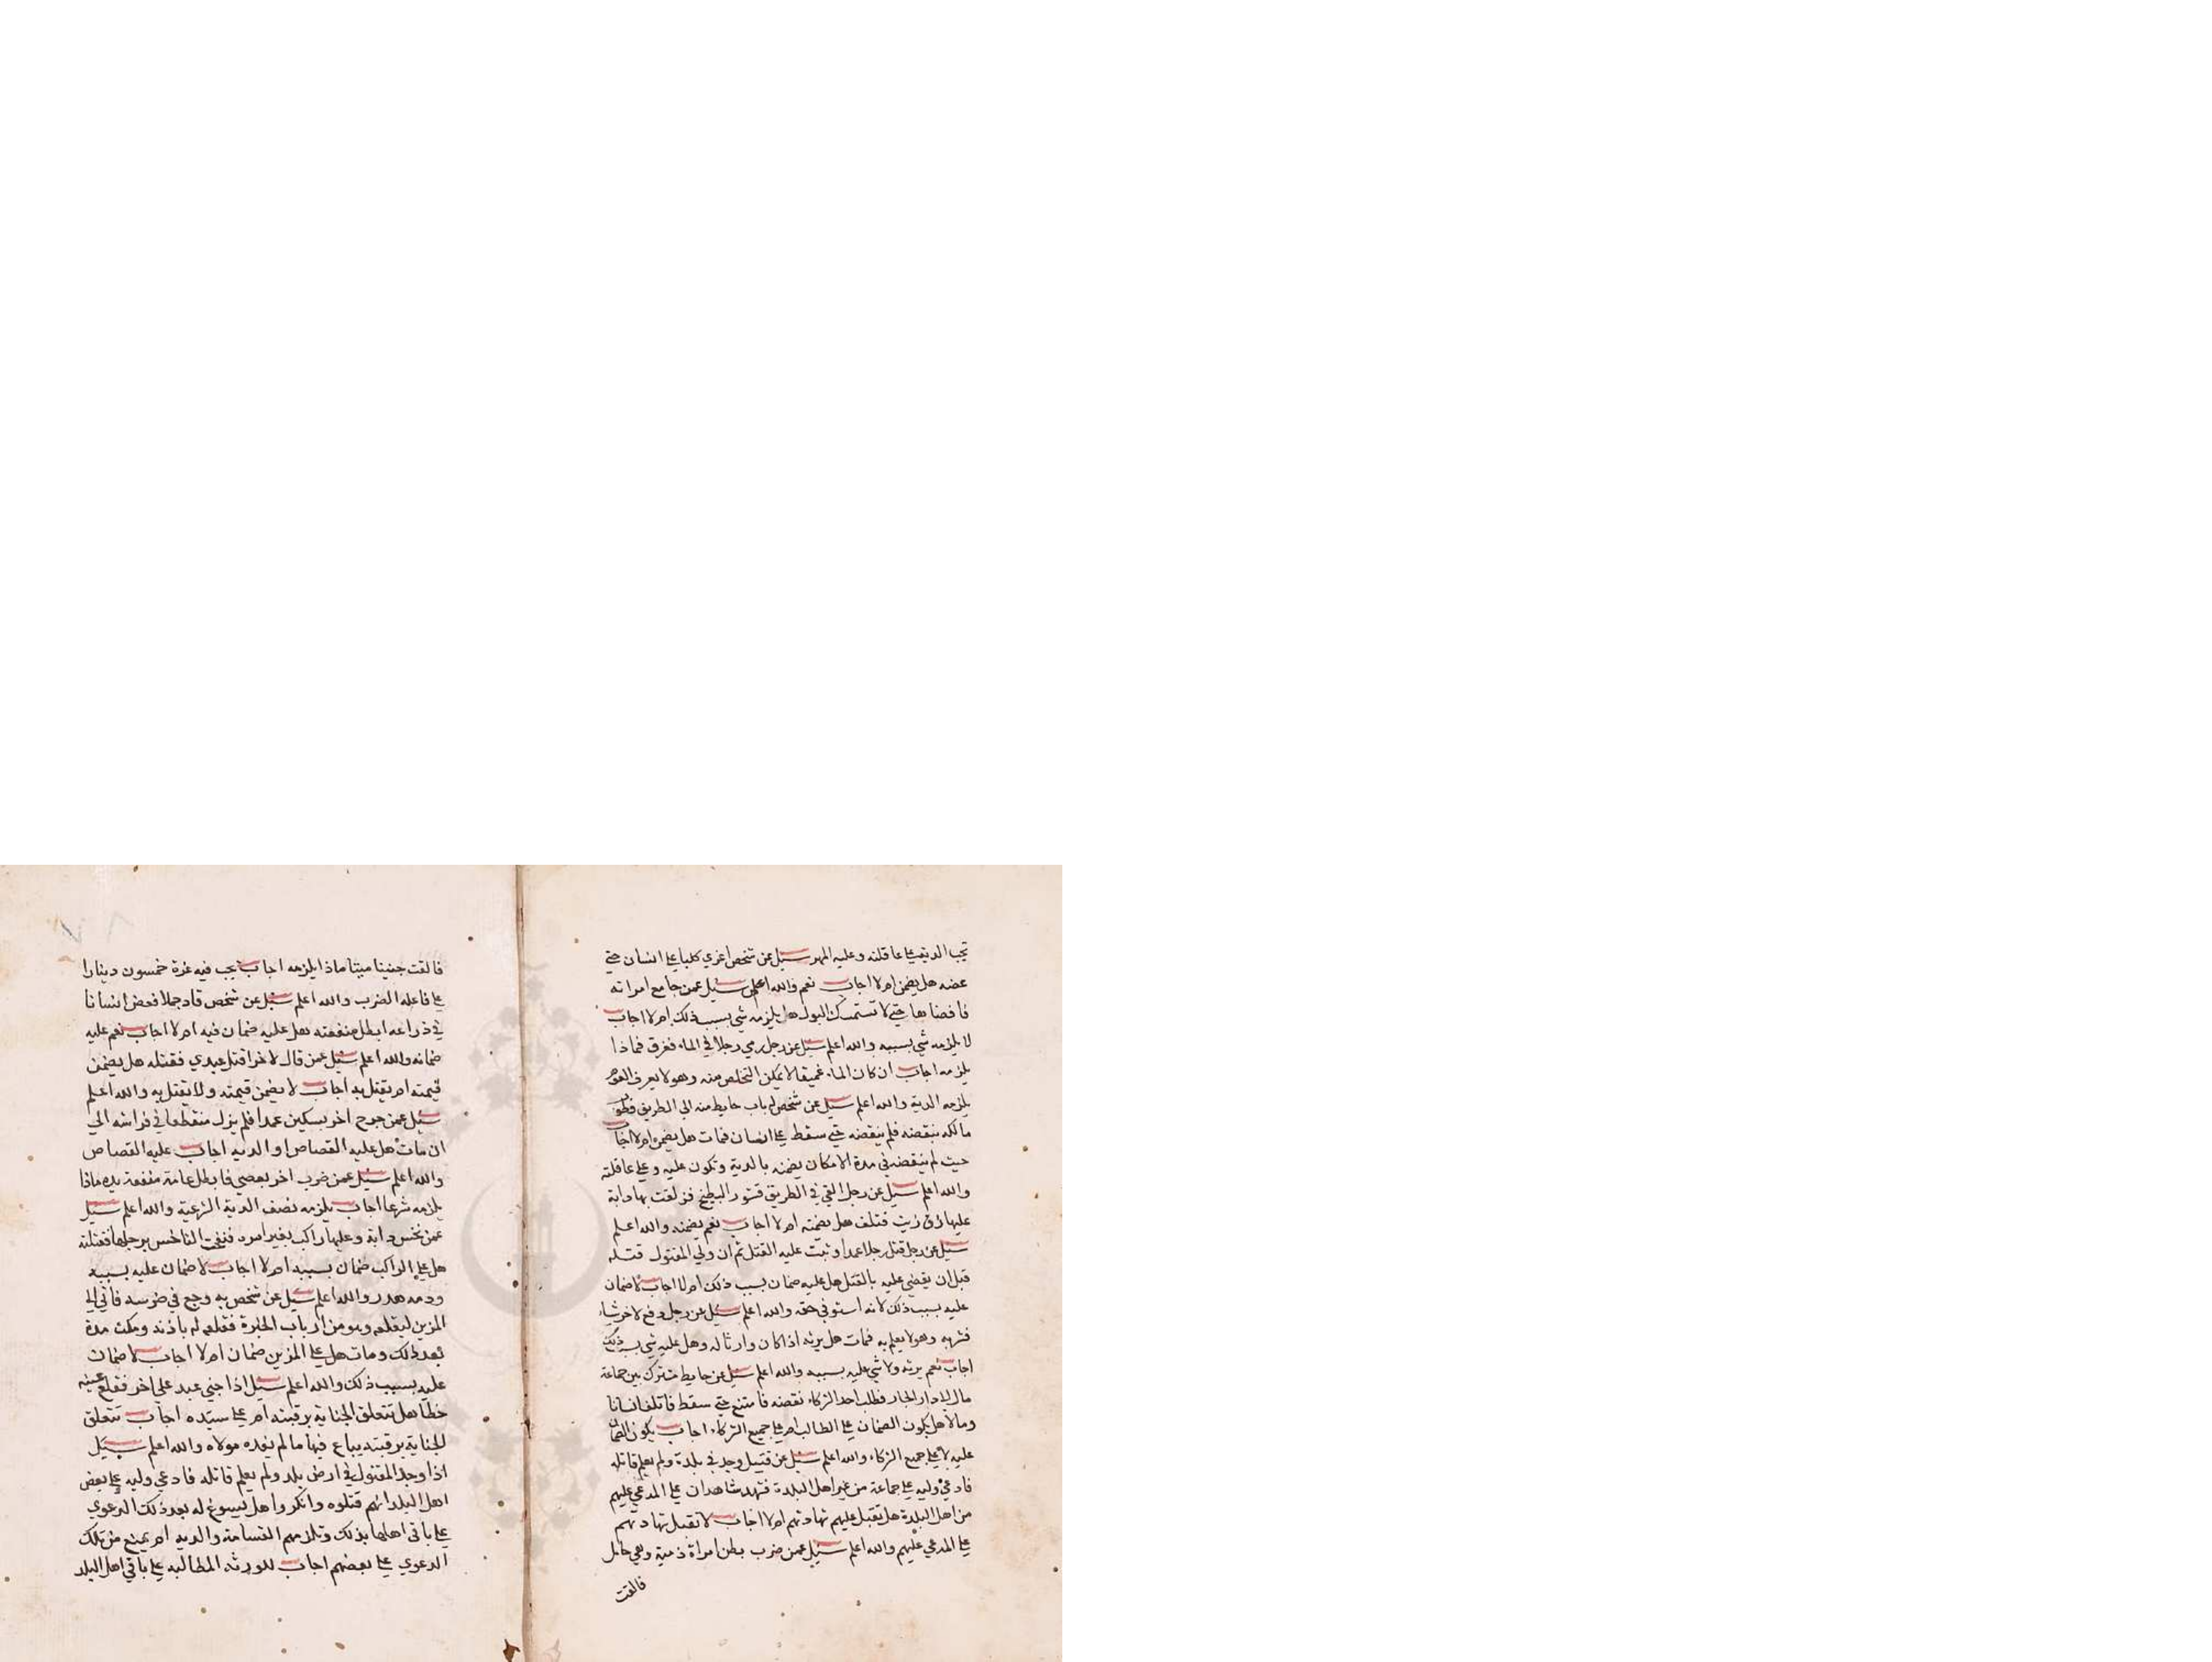 تجب الدية على عاقلته وعليه المهر سئل عن شخص اغري كلبا على انسان حتى
عضه هل يضمن ام لا اجاب نعم والله اعلم سئل عمن جامع امراته
فافضاها حتى لا تستمسك البول هل يلزمه شي بسبب ذلك ام لا اجاب
لا يلزمه شي بسببه والله اعلم سئل عن رجل رمي رجلا في الماء فغرق فماذا
يلزمه اجاب ان كان الماء عميقا لا يمكن التخلص منه وهو لا يعرف العوم
يلزمه الدية والله اعلم سئل عن شخص له باب حايط منه الي الطريق فطولب
مالكه بنقضه فلم ينقضه حتى سقط على انسان فمات هل يضمن ام لا اجاب
حيث لم ينقضه في مدة الامكان يضمنه بالدية وتكون عليه وعلى عاقلته
والله اعلم سئل عن رجل القي في الطريق قشور البطيخ فزلقت بها دابة
عليها زق زيت فتلف هل يضمنه ام لا اجاب نعم يضمنه والله اعلم
سئل عن رجل قتل رجلا عمدا وثبت عليه القتل ثم ان ولي المقتول قتله
قبل ان يقضي عليه بالقتل هل عليه ضمان بسبب ذلك ام لا اجاب لا ضمان
عليه بسبب ذلك لانه استوفي حقه والله اعلم سئل عن رجل دفع لاخر شيا
فشربه وهو لا يعلم به فمات هل يرثه اذا كان وارثا له وهل عليه شي بسبب ذلك
اجاب نعم يرثه ولا شي عليه بسببه والله اعلم سئل عن حايط مشترك بين جماعة
مال لدار الجار فطلب احد الشركاء نقضه فامتنع حتى سقط فاتلف انسانا
ومالا هل يكون الضمان على الطالب ام على جميع الشركاء اجاب يكون الضمان
عليه لا على جميع الشركاء والله اعلم سئل عن قتيل وجد في بلدة ولم يعلم قاتله
فادعي وليه على جماعة من غير اهل البلدة فشهد شاهدان على المدعي عليهم
من اهل البلدة هل تقبل عليهم شهادتهم ام لا اجاب لا تقبل شهادتهم
على المدعي عليهم والله اعلم سئل عمن ضرب بطن امراة ذمية وهي حامل
فالقت
فالقت جنينا ميتا ماذا يلزمه اجاب يجب فيه غرة خمسون دينارا
على فاعله الضرب والله اعلم سئل عن شخص قاد جملا فعض انسانا
في ذراعه ابطل منفعته هل عليه ضمان فيه ام لا اجاب نعم عليه
ضمانه والله اعلم سئل عمن قال لاخر اقتل عبدي فقتله هل يضمن
قيمته ام يقتل به اجاب لا يضمن قيمته ولا يقتل به والله اعلم
سئل عمن جرح اخر بسكين عمدا فلم يزل منقطعا في فراشه الي
ان مات هل عليه القصاص او الدية اجاب عليه القصاص
والله اعلم سئل عمن ضرب اخر بعصي فابطل عامة منفعة يده ماذا
يلزمه شرعا اجاب يلزمه نصف الدية الشرعية والله اعلم سئل
عمن نخس دابة وعليها راكب بغير امره فنفحت الناخس برجلها فقتلته
هل على الراكب ضمان بسببه ام لا اجاب لا ضمان عليه بسببه
ودمه هدر والله اعلم سئل عن شخص به وجع في ضرسه فاتي الي
المزين ليقلعه وهو من ارباب الخبرة فقلعه له باذنه ومكث مدة
بعد ذلك ومات هل على المزين ضمان ام لا اجاب لا ضمان
عليه بسبب ذلك والله اعلم سئل اذا جني عبد على اخر فقلع عينه
خطأ هل تتعلق الجناية برقبته ام على سيده اجاب تتعلق
الجناية برقبته يباع فيها ما لم يفده مولاه والله اعلم سئل
اذا وجد المقتول في ارض بلد ولم يعلم قاتله فادعي وليه على بعض
اهل البلد انهم قتلوه وانكروا هل يسوغ له بعد ذلك الدعوي
على باقي اهلها بذلك وتلزمهم القسامة والدية ام يمنع من تلك
الدعوي على بعضهم اجاب للورثة المطالبة على باقي اهل البلد